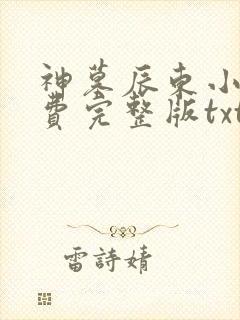 神墓辰東小
費完整版txt
雷詩婧